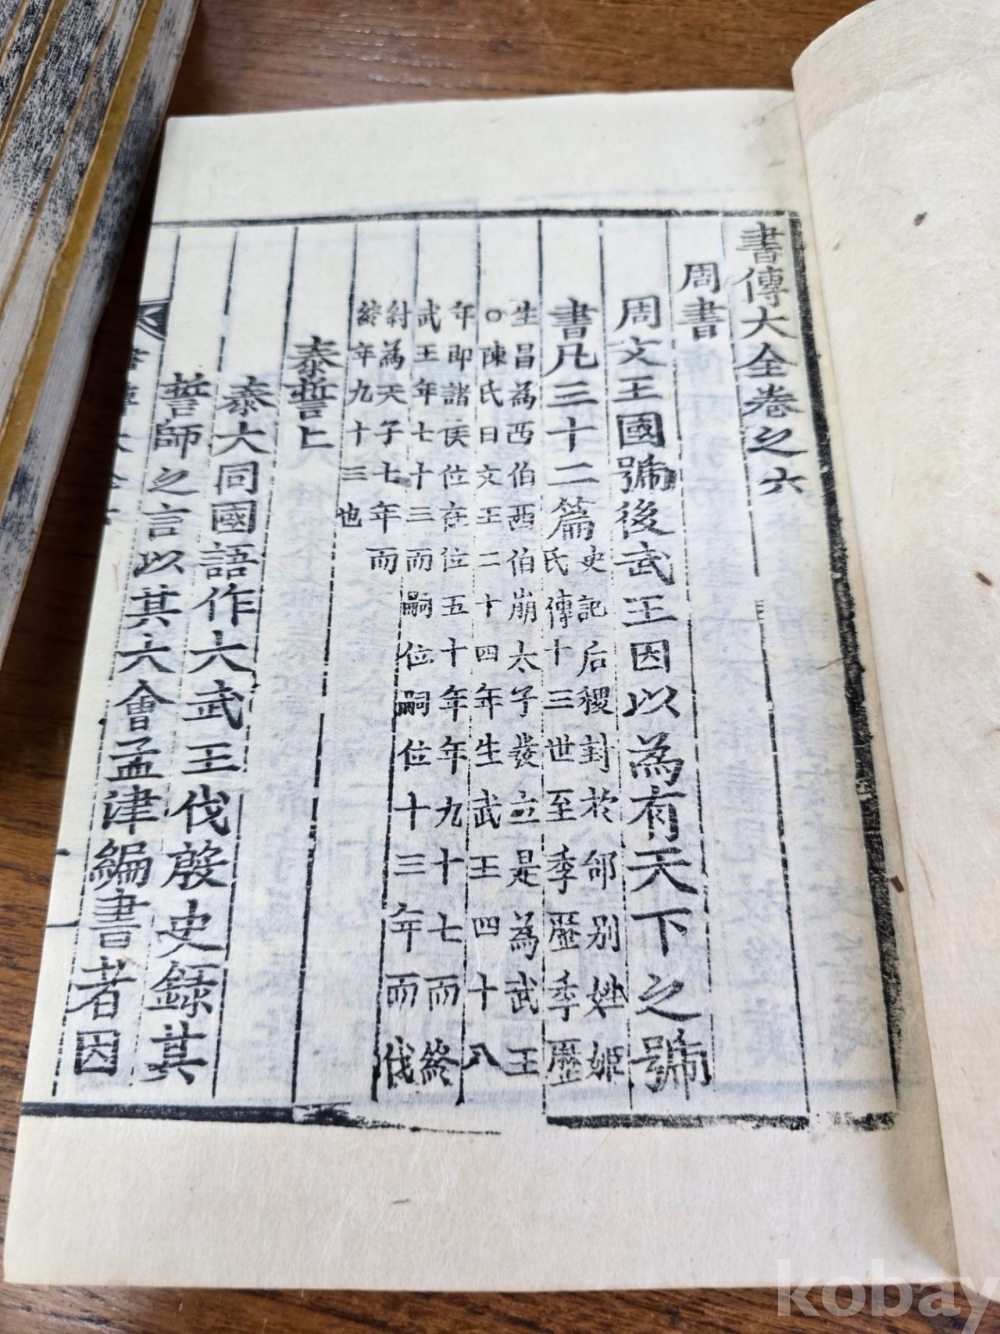 書傳大全卷之六
周書
周文王國號後武王因以為有天下之號
書凡三十二篇史記后稷封於邰别姓姬
氏傳十三世至季歷季歷
生昌為西伯西伯崩太子發立是為武王
○陳氏曰文王二十四年生武王四十八
年即諸侯位在位五十年年九十七而終
武王年七十三而嗣位嗣位十三年而伐
紂為天子七年而
終年九十三也
泰誓上
泰大同國語作大武王伐殷史錄其
誓師之言以其大會孟津編書者因
kobay